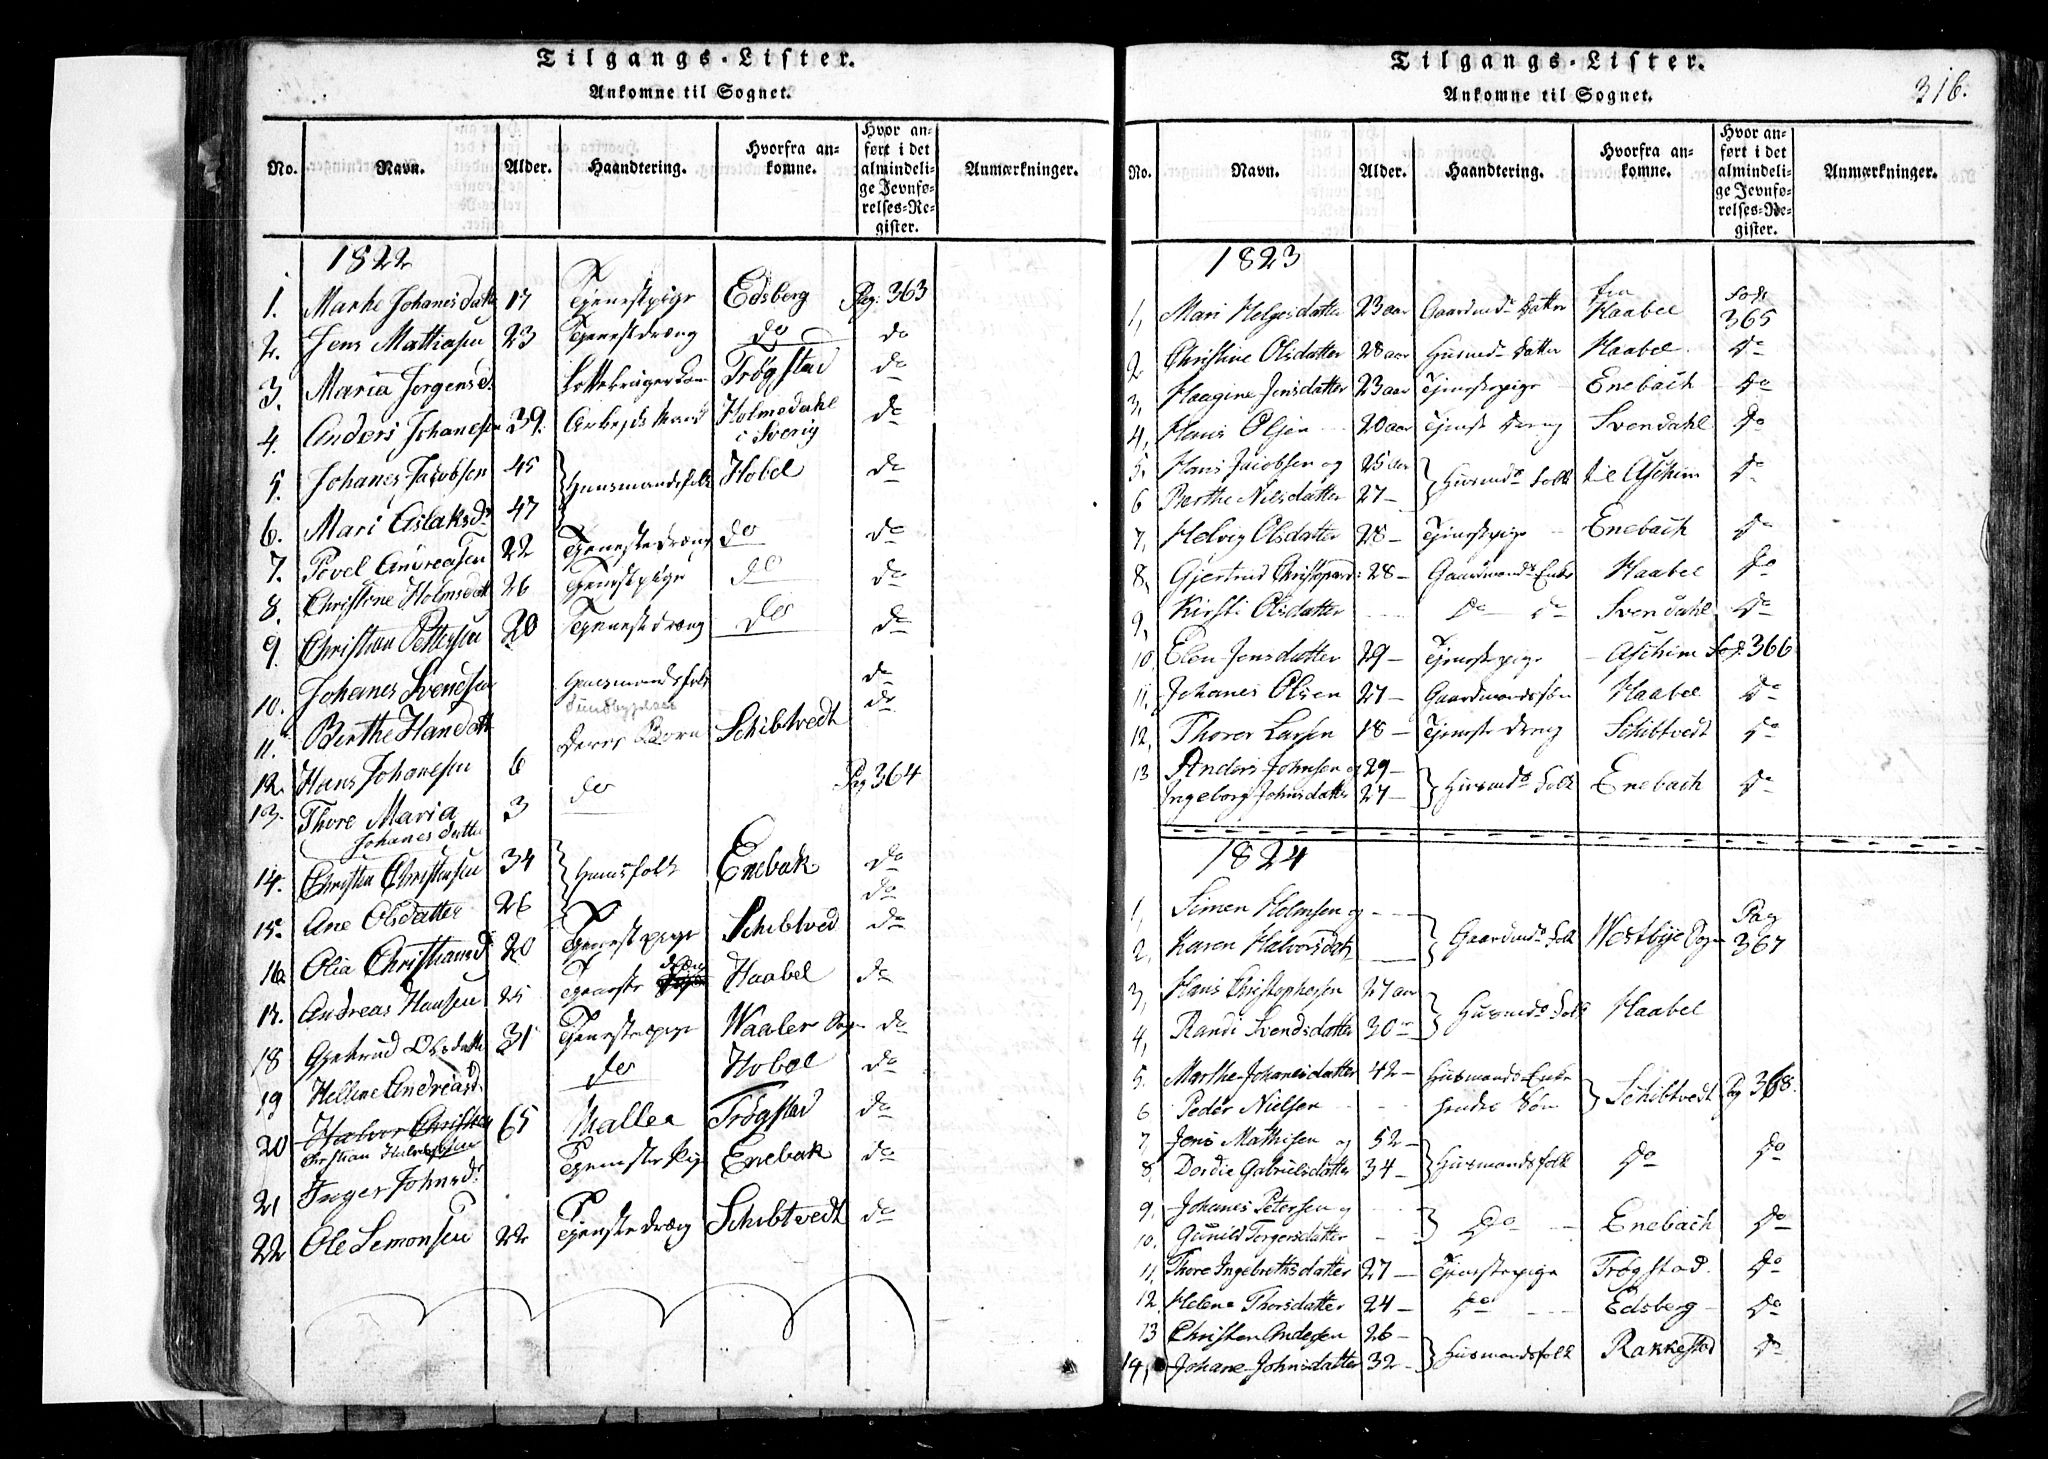 Tilgangs-Lister.
Ankomne til Sognet.
No. Navn. Alder. Haandtering. Hvorfra ankomne. Hvor anført i det almindelige Jevnførelses-Register. Anmærkninger.
1822
1. Marthe Johanesdatter 17 Tjenestpige Edsberg Pag: 363
2. Jens Mathiasen 23 Tjenestdræng do do
3. Maria Jorgensd. Trögstad do
4. Anders Johanesen 39. Arbejdsmand Holmedahl i Sverig do
5. Johanes Jacobsen 45 Huusmandsfolk Hobel do
6. Mari Aslaksd. 47
7. Povel Andreasen 22 Tjenestedræng do do
8. Christine Holmsdat 26 Tjenestpige do do
9. Christian Pettersen 20 Tjenestdræng do do
10. Johanes Svendsen Huusmandsfolk do
11. Berthe Hansdatt Schibtvedt do
12. Hans Johanesen 6 Deres Børn Pag 364
13. Thore Maria Johanesdatter 3 do
14. Christen Christensen 34 Huusfolk Enebak do
15. Ane Olsdatter 26 do
16. Olia Christiansd 20 Tjenestpige Schibtved do
17. Andreas Hansen 25 Tjeneste dræng Haabel do
18 Gjertrud Olsdatte 31 Tjenestepige Waaler do
19 Helline Andreasd. do Hobøl do
20 Halvor Christen Christian Halvorsen 65 Trögstad do
21 Inger Johnsd: Tjenestepige Enebak do
22 Ole Semonsen 22 Tjenstedræg Schibtvedt do
Tilgangs-Lister.
Ankomne til Sognet.
316.
No. Navn. Alder. Haandtering. Hvorfra ankomne. Hvor anført i det almindelige Jevnførelses-Register. Anmærkninger.
1823
1, Mari Helgesdatter 23 aar Gaardmds Datter fra Haabel 365
2 Christine Olsdatter 28 aar Husmds Datter Haabel do
3, Haagine Jensdatter 23 aar Tjenestepige Enebach do
4, Hans Olsen 20 aar Tjenste Dreng Svendahl do
5. Hans Jacobsen og 25 aar Husmds Folk til Aschim do
6 Berthe Nilsdatter 27
7, Helvig Olsdatter 28 Tjenstpige Enebach do
8, Gjertrud Christophersd: 28 Gaardmands Enke Haabel do
9, Kirsti Olsdatter do do Svendahl do
10, Elen Jensdatter 29 Tjenstepige Aschim 366
11, Johanes Olsen 27 Gaardmandssøn Haabel do
12, Thorer Larsen 18 Tjenste dreng Schibtvedt do
13 Anders Johnsen og 29 Husmds Folk Enebach do
Ingeborg Johnsdatter 27
1824
1, Simen Holmsen og Gaardmds Folk Westbye Pag 367
2, Karen Halvorsdatt
3, Hans Christophersen 27 aar Husmds Folk Haabel
4, Randi Svendsdatter 30
5. Marthe Johanesdatter 42 Husmands Enke Schibtvedt Pag 368.
6 Peder Nielsen hendes Søn
7 Jens Mathisen og 52 Husmandsfolk do do
8. Dordie Gabrielsdatter 34
9. Johanes Petersen og do Enebach do
10. Gunild Torgersdatter
11, Thore Ingebrethsdatter 27 Tjenstepige Trögstad. do
12. Helene Thorsdatter 24 do Edsberg do
13 Christen Andersen 26 Husmandsfolk Rakkestad do
14, Johane Johnsdatter 32